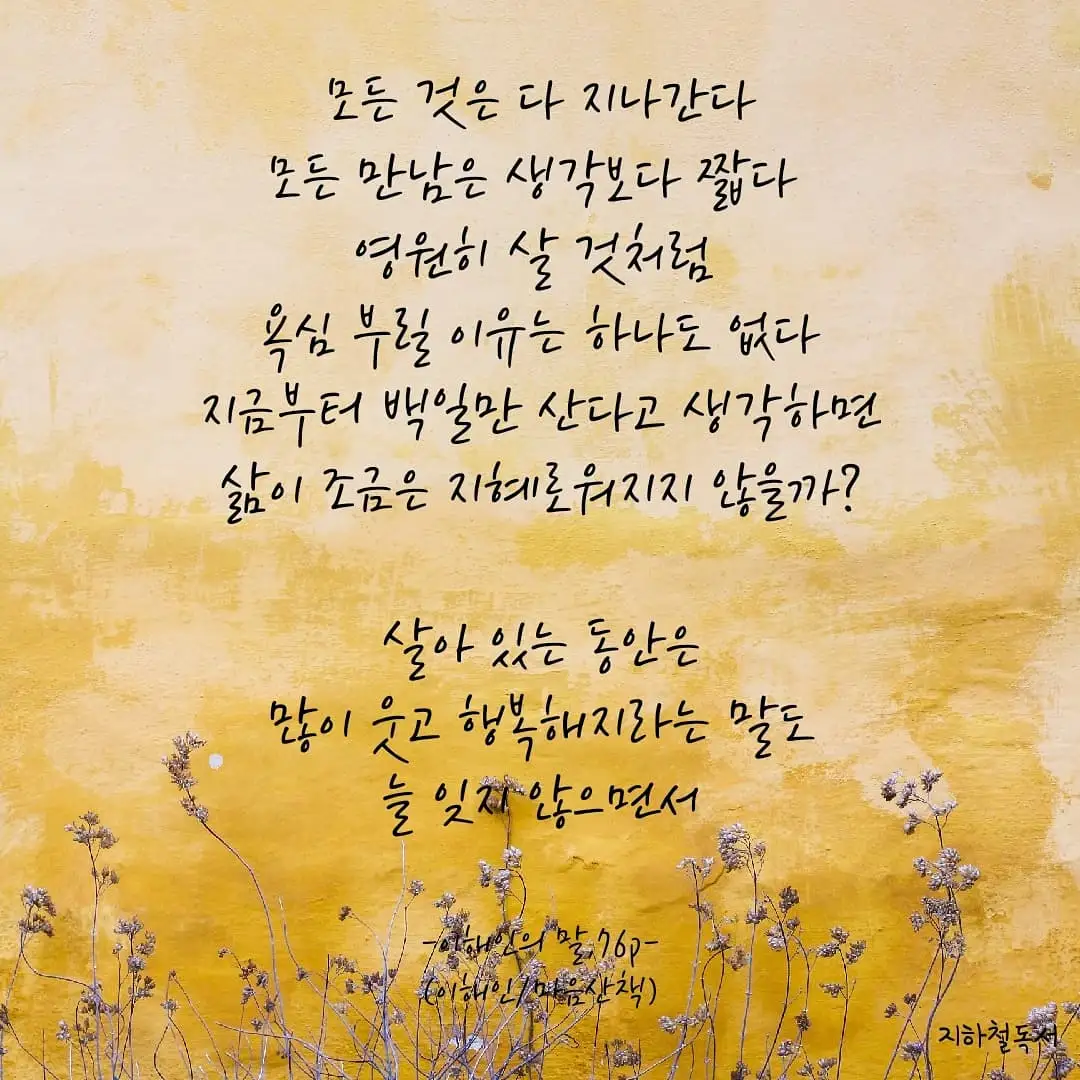 모든 것은 다 지나간다
모든 만남은 생각보다 짧다
영원히 살 것처럼
욕심 부릴 이유는 하나도 없다
지금부터 백일만 산다고 생각하면
삶이 조금은 지혜로워지지 않을까?
살아 있는 동안은
많이 웃고 행복해지라는 말도
늘 잊지 않으면서
-이해인의 말,76p-
(이해인/마음산책)
지하철독서